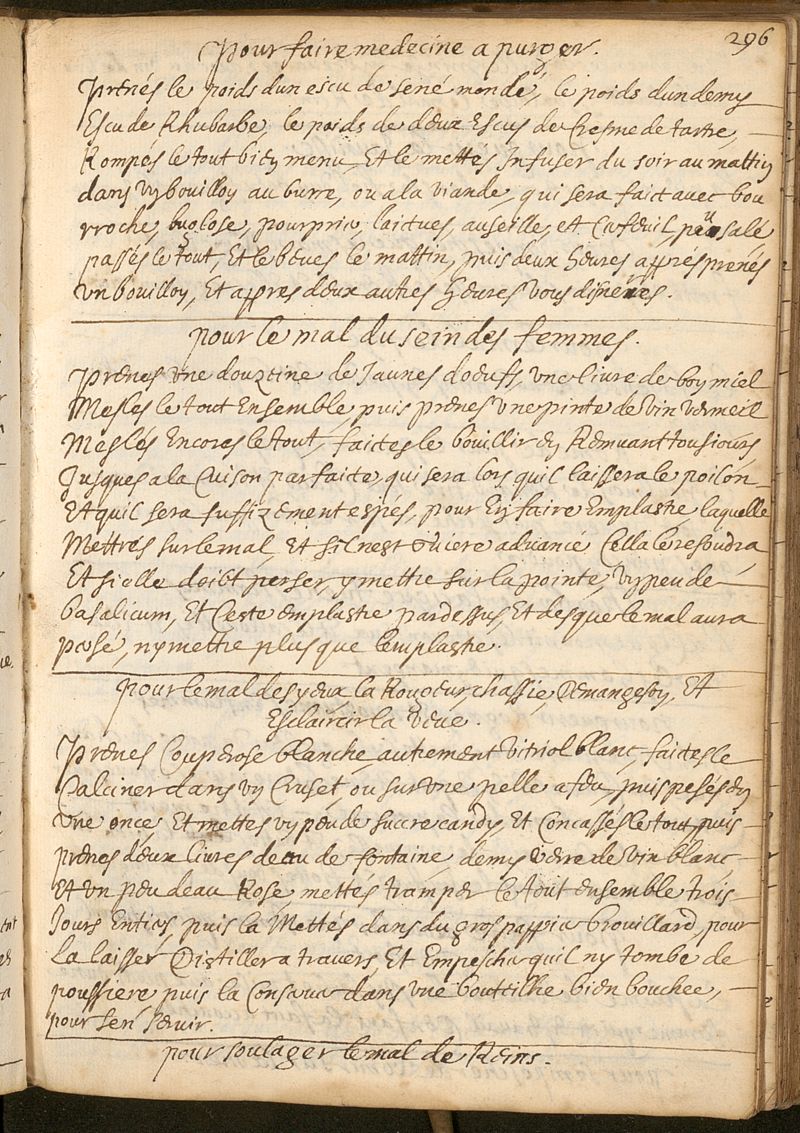 296
pour faire medecine a purger.
Prenés le poids dun escu de sené mondé, le poids dun demy
Escu de Rhubarbe, le poids de deux Escus de Cresme de tartre,
Rompés le tout bien menu, Et le mettés Infuser du soir au mattin
dans un bouillon au burre, ou a la viande, qui sera faict avec bou
rroche, buglose, pourpriu, laictues, auseille, et Cerfeuil, peu salé
passés le tout, Et le beues le mattin, puis deux heures apprés prenés
un bouillon, Et appres deux autres heures vous disnerés.
pour le mal du sein des femmes.
Prenes une douzeine de Jaunes doeufs, une livre de bon miel
Mesles le tout Ensemble, puis prenes une pinte de vin vermeil
Meslés Encores le tout, faictes le bouillir en Remuant tousiours
Jusques a la Cuison parfaicte, qui sera lors quil laissera le poilon
Et quil sera suffizement espés, pour En faire Emplastre laquelle
Mettrés sur le mal, Et sil nest guiere advancé Cella le resoudra
Et si elle doibt perser, y mettre sur la pointe un peu de
basalicum, Et Ceste emplastre par dessus, Et des que le mal aura
persé, ny mettre plus que lemplastre.
pour le mal des yeux la Rougeur, chassie, Demangeson, Et
Esclaircir la veue.
Prenes Couperose blanche autrement vitriol blanc, faictes le
Calciner dans un Cruset, ou sur une pelle a feu, puis pesés en
une once Et mettes un peu de succre candy, Et Concassés le tout, puis
prenes deux livres deau de fontaine, demy verre de vin blanc
Et un peu deau Rose, mettés tramper le tout ensemble trois
Jours Entiers, puis la Mettés dans du gros pappier brouillard, pour
La laisser Distiller a travers Et Empescher quil ny tombe de
poussiere puis la Conserver dans une bouteilhe bien bouchee,
pour sen servir.
pour soulager le mal de Reins.